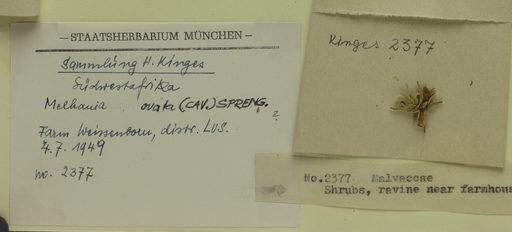 —STAATSHERBARIUM MÜNCHEN—
Sammlung H. Kinges
Südwestafrika
Melhania ovata (CAV.) SPRENG.
?
Farm Weissenborn, distr. LUS.
7.7.1949
no. 2377
Kinges 2377
No.2377 Malvaceae
Shrubs, ravine near farmhous